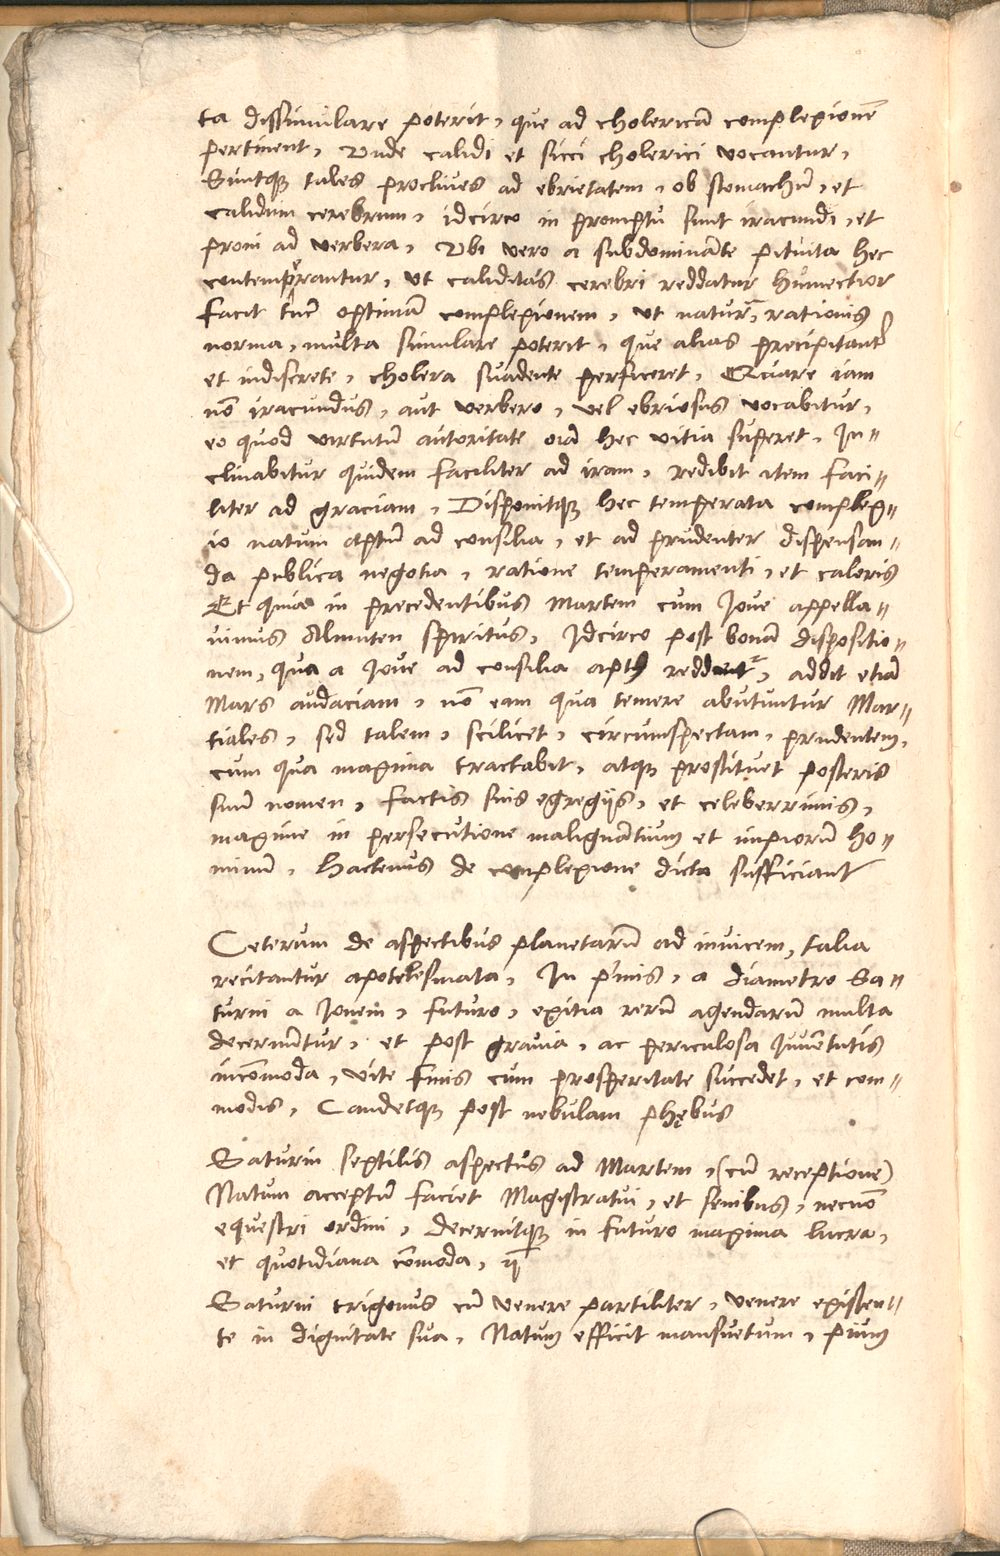 ta dissimulare poterit, que ad cholericā complexionē
pertinent, Vnde calidi et sicci cholerici vocantur,
Suntqꝫ tales proclives ad ebrietatem, ob stomachū, et
calidum cerebrum, idcirco in promptu sunt iracundi, et
proni ad verbera, Vbi vero a subdomināte pituita hec
contemperantur, vt caliditas cerebri reddatur humectior
facit tūc optimā complexionem, vt natur, rationis
norma, multa simulare poterit, que alias precipitantr
et indiscrete, cholera suadente perficeret, Quare iam
nō iracundus, aut verbero, vel ebriosus vocabitur,
eo quod virtutū autoritate oīa hec vitia superet, In=
clinabitur quidem faciliter ad iram, redibit item faci=
liter ad graciam, Disponitqꝫ hec temperata complex=
io natum aptū ad consilia, et ad prudenter dispensan=
da publica negotia, ratione temperamenti, et caloris
Et quia in precedentibus Martem cum Jove appella=
uimus Almuten spiritus, Idcirco post bonā dispositio=
nem, qua a Jove ad consilia aptꝰ reddit, addit etiā
Mars audaciam, nō eam qua temere abutuntur Mar=
tiales, sed talem, scilicet, circumspectam, prudentem,
cum qua maxima tractabit, atqꝫ prostituet posteris
suū nomen, factis suis egregijs, et celeberrimis,
maxime in persecutione malignātium et impiorū ho=
minū, Hactenus de complexione dicta sufficiant

Ceterum de aspectibus planetarū ad invicem, talia
recitantur apotelesmata, In p'mis, a diametro Sa=
turni a Jovem, futuro, exitia rerū agendarū multa
decernūtur, et post gravia, ac periculosa Juvētutis
incōmoda, vite finis cum prosperitate succedet, et com=
modis, Candetqꝫ post nebulam phębus

Saturni sextilis aspectus ad Martem, (cū receptione)
Natum acceptū faciet Magistratui, et senibus, necnō
equestri ordini, decernitqꝫ in futuro maxima lucra,
et quotidiana cōmoda,

Saturni trigonus cū venere partiliter, venere existen=
te in dignitate sua, Natum efficit mansuetum, pium